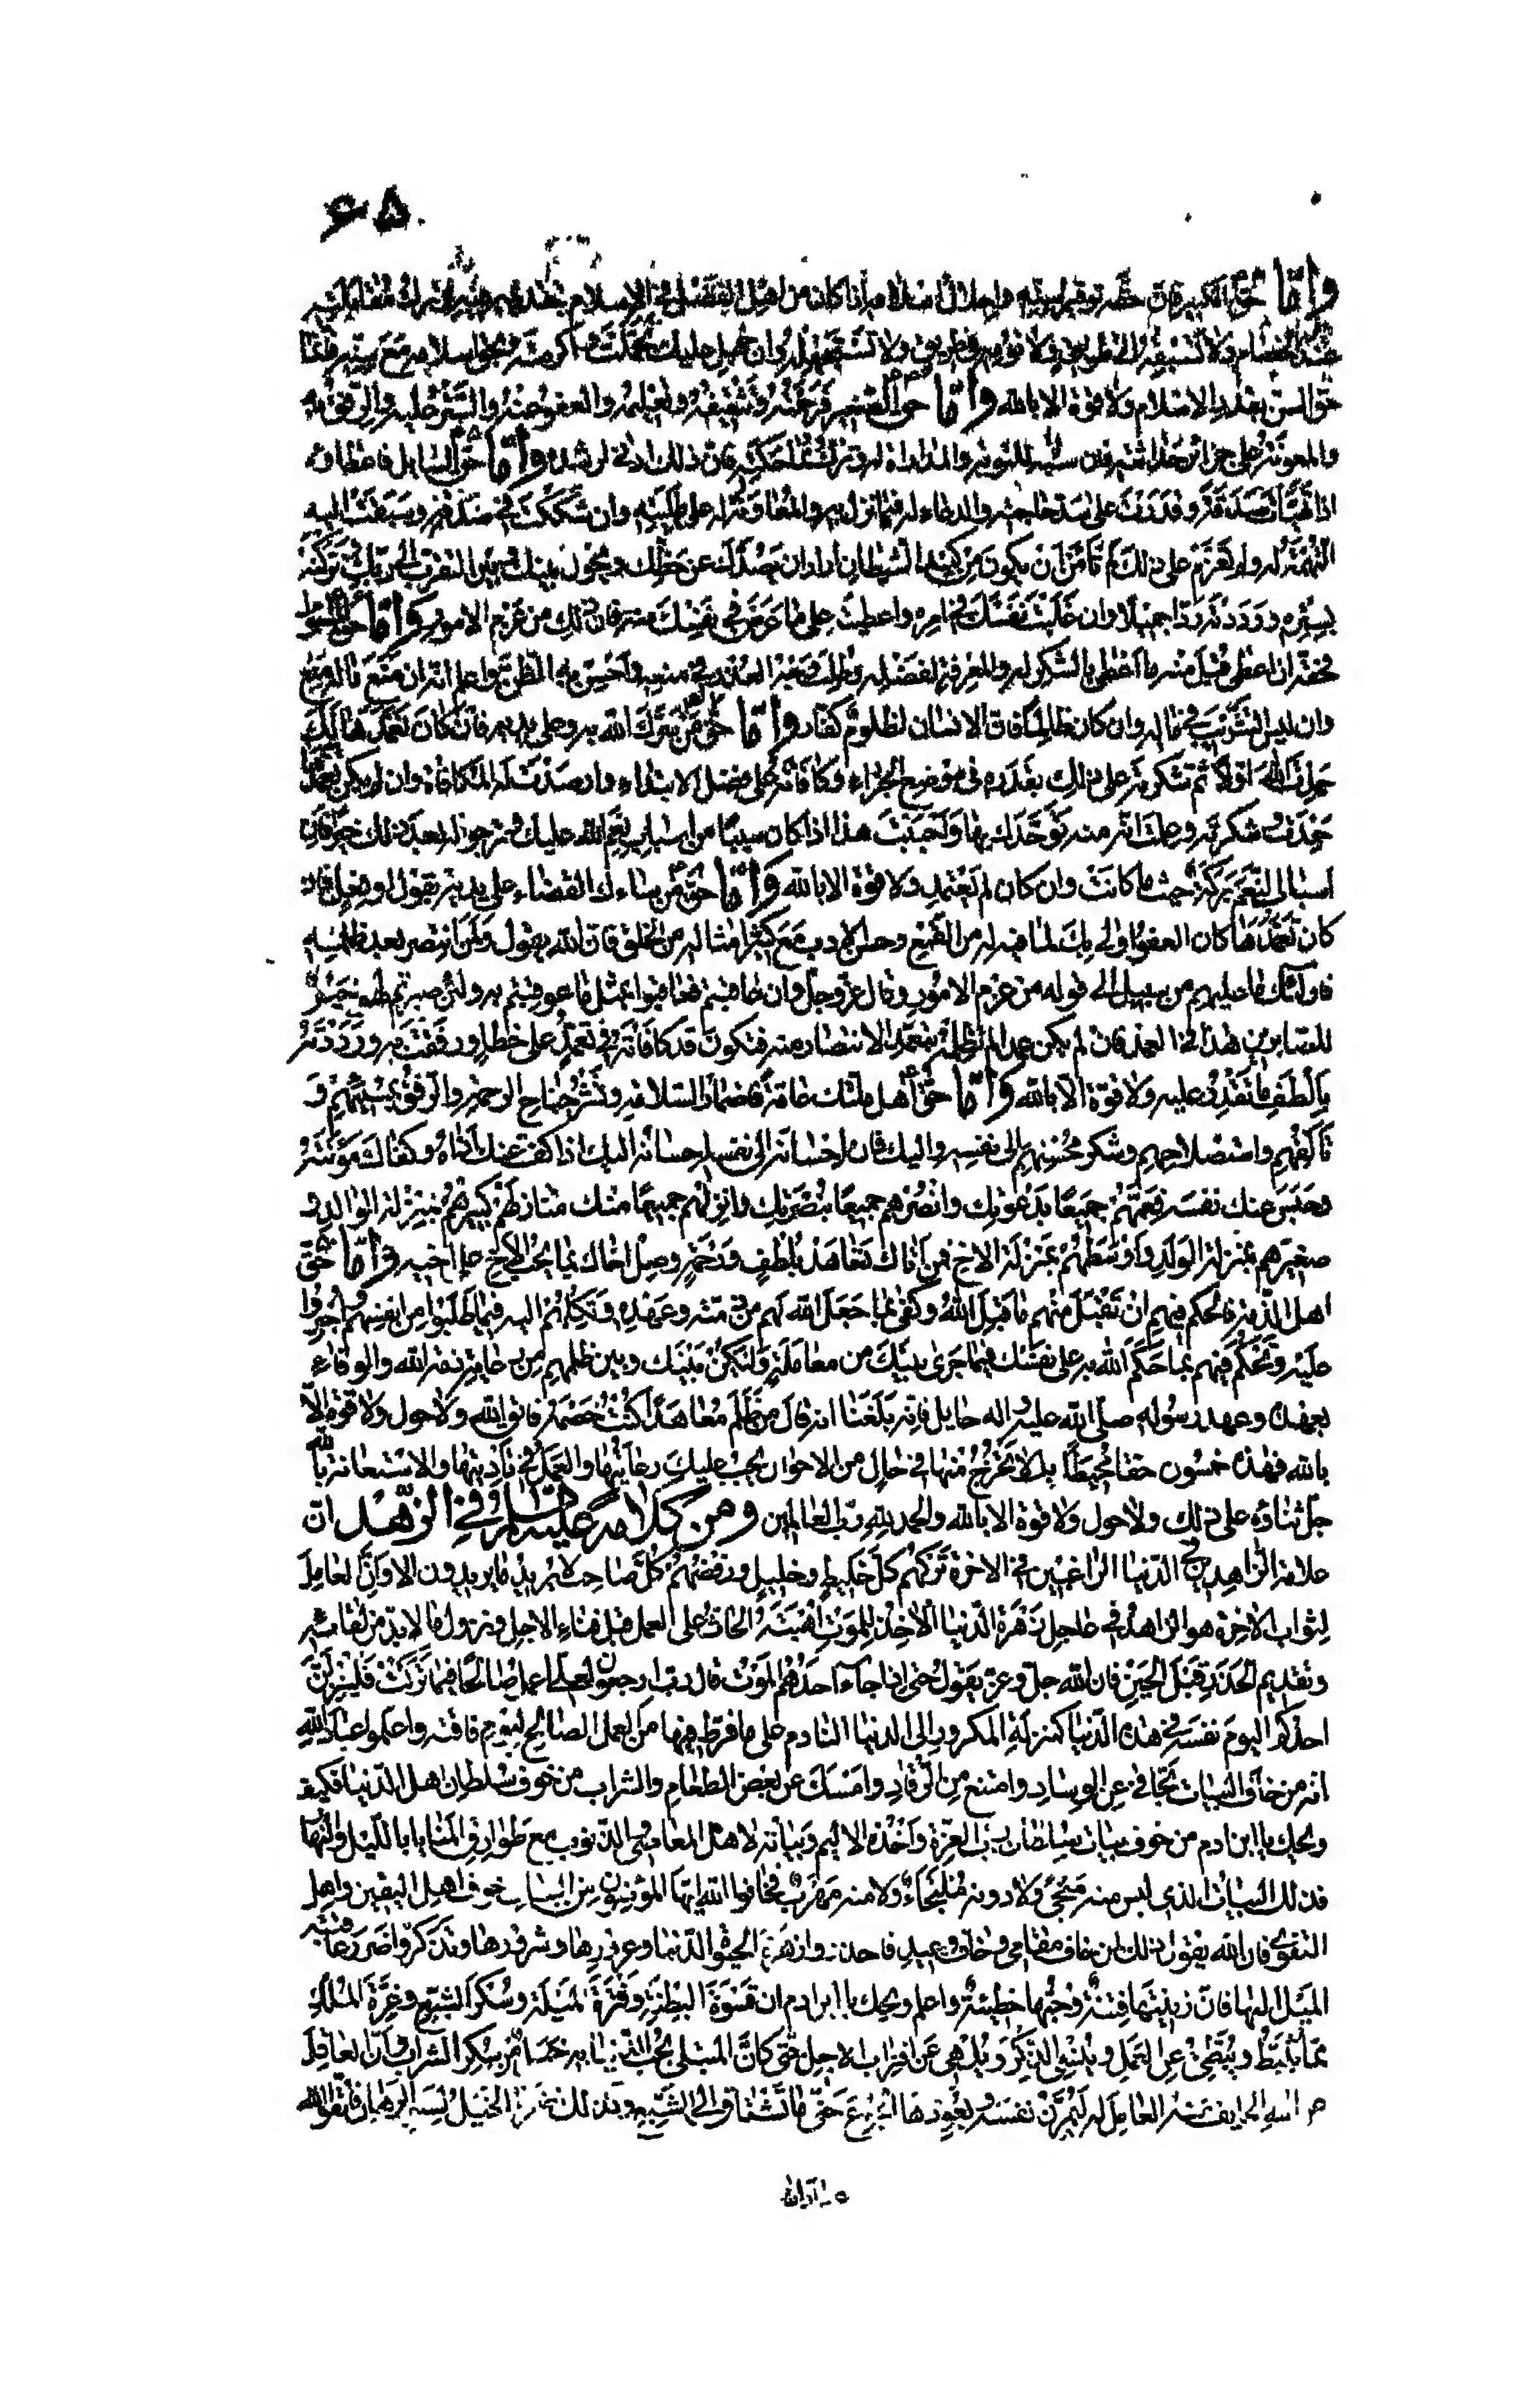 ۶۵
وامّا حقّ الكبير فان حقّه توقير سنّه واجلال اسلامه اذا كان من اهل الفضل فى الاسلام بتقديمه فيه وترك مقابلته
عند الخصام ولا تسبقه الى طريق ولا تؤمّه فى طريق ولا تستجهله وان جهل عليك تحمّلت واكرمته بحق اسلامه مع سنّه فانّما
حقّ السنّ بقدر الاسلام ولا قوّة الا بالله وامّا حق الصغير فرحمته وتثقيفه وتعليمه والعفو عنه والستر عليه والرفق به
والمعونة له والستر على جرائر حداثته فانه سبب للتوبة والمداراة له وترك مماحكته فانّ ذلك ادنى لرشده وامّا حقّ السايل فاعطاؤه
اذا تهيّأت صدقة وقدرت على سد حاجته والدعاء له فيما نزل به والمعاونة له على طلبته وان شككت فى صدقه وسبقت اليه
التهمة له ولم تعزم على ذلك لم تأمن ان يكون من كيد الشيطان اراد ان يصدّك عن حظّك ويحول بينك وبين التقرب الى ربك تركته
بستره ورددته ردّا جميلا وان غلبت نفسك فى امره واعطيته على ما عرض فى نفسك منه فان ذلك من عزم الامور وامّا حق المسئول
فحقّه ان اعطى قبل منه ما اعطى بالشكر له والمعرفة لفضله وطلب وجه العذر فى منعه واحسن به الظن واعلم انه ان منع فماله منع
وان ليس التثريب فى ماله وان كان ظالما فان الانسان لظلوم كفّار وامّا حقّ من سرّك الله به وعلى يديه فان كان تعمّدها لك
حمدت الله اوّلا ثم شكرته على ذلك بقدره فى موضع الجزاء وكافأته على فضل الابتداء وارصدت له المكافاة وان لم يكن تعمّدها
حمدت الله وشكرته وعلمت انه منه توحّدك بها واحببت هذا اذا كان سببا من اسباب نعم الله عليك وترجو له بعد ذلك خيرا فان
اسباب النعم بركة حيث ما كانت وان كان لم يعتمد ولا قوّة الا بالله وامّا حقّ من ساءك القضاء على يديه بقول او فعل فان
كان تعمّدها كان العفو اولى بك لما فيه له من القمع وحسن الادب مع كثير امثاله من الخلق فان الله يقول ولمن انتصر بعد ظلمه
فاولئك ما عليهم من سبيل الى قوله من عزم الامور وقال عزّ وجلّ وان عاقبتم فعاقبوا بمثل ما عوقبتم به ولئن صبرتم لهو خير
للصابرين هذا فى العمد فان لم يكن عمدا لم تظلمه بتعمّد الانتصار منه فتكون قد كافأته فى تعمّد على خطاء ورفقت به ورددته
بالطف ما تقدر عليه ولا قوّة الّا بالله وامّا حقّ اهل ملّتك عامّة فاضمار السّلامة ونشر جناح الرحمة والرفق بمسيئهم و
تألّفهم واستصلاحهم وشكر محسنهم الى نفسه واليك فان احسانه الى نفسه احسانه اليك اذا كفّ عنك اذاه وكفاك مؤنته
وحبس عنك نفسه فعمّهم جميعا بدعوتك وانصرهم جميعا بنصرتك وانزلهم جميعا منك منازلهم كبيرهم بمنزلة الوالد و
صغيرهم بمنزلة الولد واوسطهم بمنزلة الاخ فمن اتاك تعاهده بلطف ورحمة وصل اخاك بما يجب للاخ على اخيه وامّا حقّ
اهل الذّمة فالحكم فيهم ان تقبل منهم ما قبل الله وكفى بما جعل الله لهم من ذمّته وعهده وتكلهم اليه فيما طلبوا من انفسهم واجبروا
عليه وتحكم فيهم بما حكم الله به على نفسك فيما جرى بينك من معاملة وليكن بينك وبين ظلمهم من رعاية ذمّة الله والوفاء
بعهده وعهد رسوله صلّى الله عليه واله حايل فانّه بلغنا انه قال من ظلم معاهدا كنت خصمه فاتق الله ولا حول ولا قوّة الّا
بالله فهذه خمسون حقّا محيطا بك لا تخرج منها فى حال من الاحوال يجب عليك رعايتها والعمل فى تأديتها والاستعانة بالله
جلّ ثناؤه على ذلك ولا حول ولا قوّة الا بالله والحمد لله ربّ العالمين ومن كلامه عليه السلام فى الزّهد ان
علامة الزاهدين فى الدّنيا الراغبين فى الاخرة تركهم كلّ خليط وخليل ورفضهم كلّ صاحب لا يريد ما يريدون الا وانّ العامل
لثواب الاخرة هو الزاهد فى عاجل زهرة الدّنيا الاخذ للموت اهبته الحاثّ على العمل قبل فناء الاجل ونزول ما لا بدّ من لقائه
وتقديم الحذر قبل الحين فان الله جلّ وعزّ يقول حتى اذا جاء احدهم الموت قال ربّ ارجعون لعلى اعمل صالحا فيما تركت فلينزلنّ
احدكم اليوم نفسه فى هذه الدّنيا كمنزلة المكرور الى الدنيا النادم على ما فرّط فيها من العمل الصّالح ليوم فاقته واعلموا عباد الله
انه من خاف البيات تجافى عن الوساد وامتنع من الرّقاد وامسك عن بعض الطعام والشراب من خوف سلطان اهل الدّنيا فكيف
ويحك يا ابن ادم من خوف بيات سلطان ربّ العزّة واخذه الاليم وبياته لاهل المعاصى والذّنوب مع طوارق المنايا بالليل والنّهار
فذلك البيات الذى ليس منه منجى ولا دونه ملتجاء ولا منه مهرب فخافوا الله ايّها المؤمنون من البيات خوف اهل اليقين واهل
التقوى فان الله يقول ذلك لمن خاف مقامى وخاف وعيد فاحذروا زهرة الحيوة الدّنيا وغرورها وشرورها وتذكّروا ضرر عاقبة
الميل اليها فانّ زينتها فتنة وحبّها خطيئة واعلم ويحك يا ابن ادم ان قسوة البطنة وفترة الميلة وسكر الشبع وغرّة الملك
ممّا يثبّط ويبطئ عن العمل وينسى الذّكر ويلهى عن اقتراب الاجل حتى كانّ المبتلى بحبّ الدّنيا به خبل من سكر الشراب وانّ العاقل
عن الله الخايف منه العامل له ليمرّن نفسه ويعوّدها الجوع حتى ما تشتاق الى الشبع وكذلك تضمّر الخيل لسبق الرهان فاتقوا الله